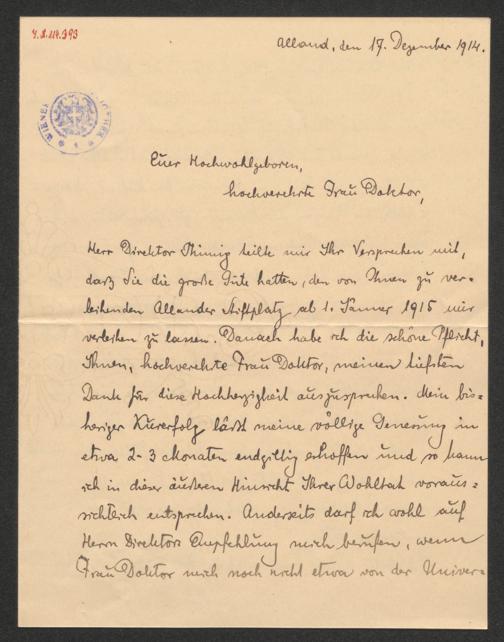 Alland, den 17. Dezember 1914.
WIENER
Euer Hochwohlgeboren,
hochverehrte Frau Doktor,
Herr Direktor Thimig teilte mir Ihr Versprechen mit,
daß Sie die große Güte hatten, den von Ihnen zu ver-
leihenden Allander Stiftplatz ab 1. Jänner 1915 mir
verleihen zu lassen. Danach habe ich die schöne Pflicht,
Ihnen, hochverehrte Frau Doktor, meinen tiefsten
Dank für diese Hochherzigkeit auszusprechen. Mein bis=
heriger Kurerfolg läßt meine völlige Genesung in
etwa 2-3 Monaten endgiltig erhoffen und so kann
ich in dieser äußeren Hinsicht Ihrer Wohltat voraus-
sichtlich entsprechen. Anderseits darf ich wohl auf
Herrn Direktors Empfehlung mich berufen, wenn
Frau Doktor mich noch nicht etwa von der Univer=